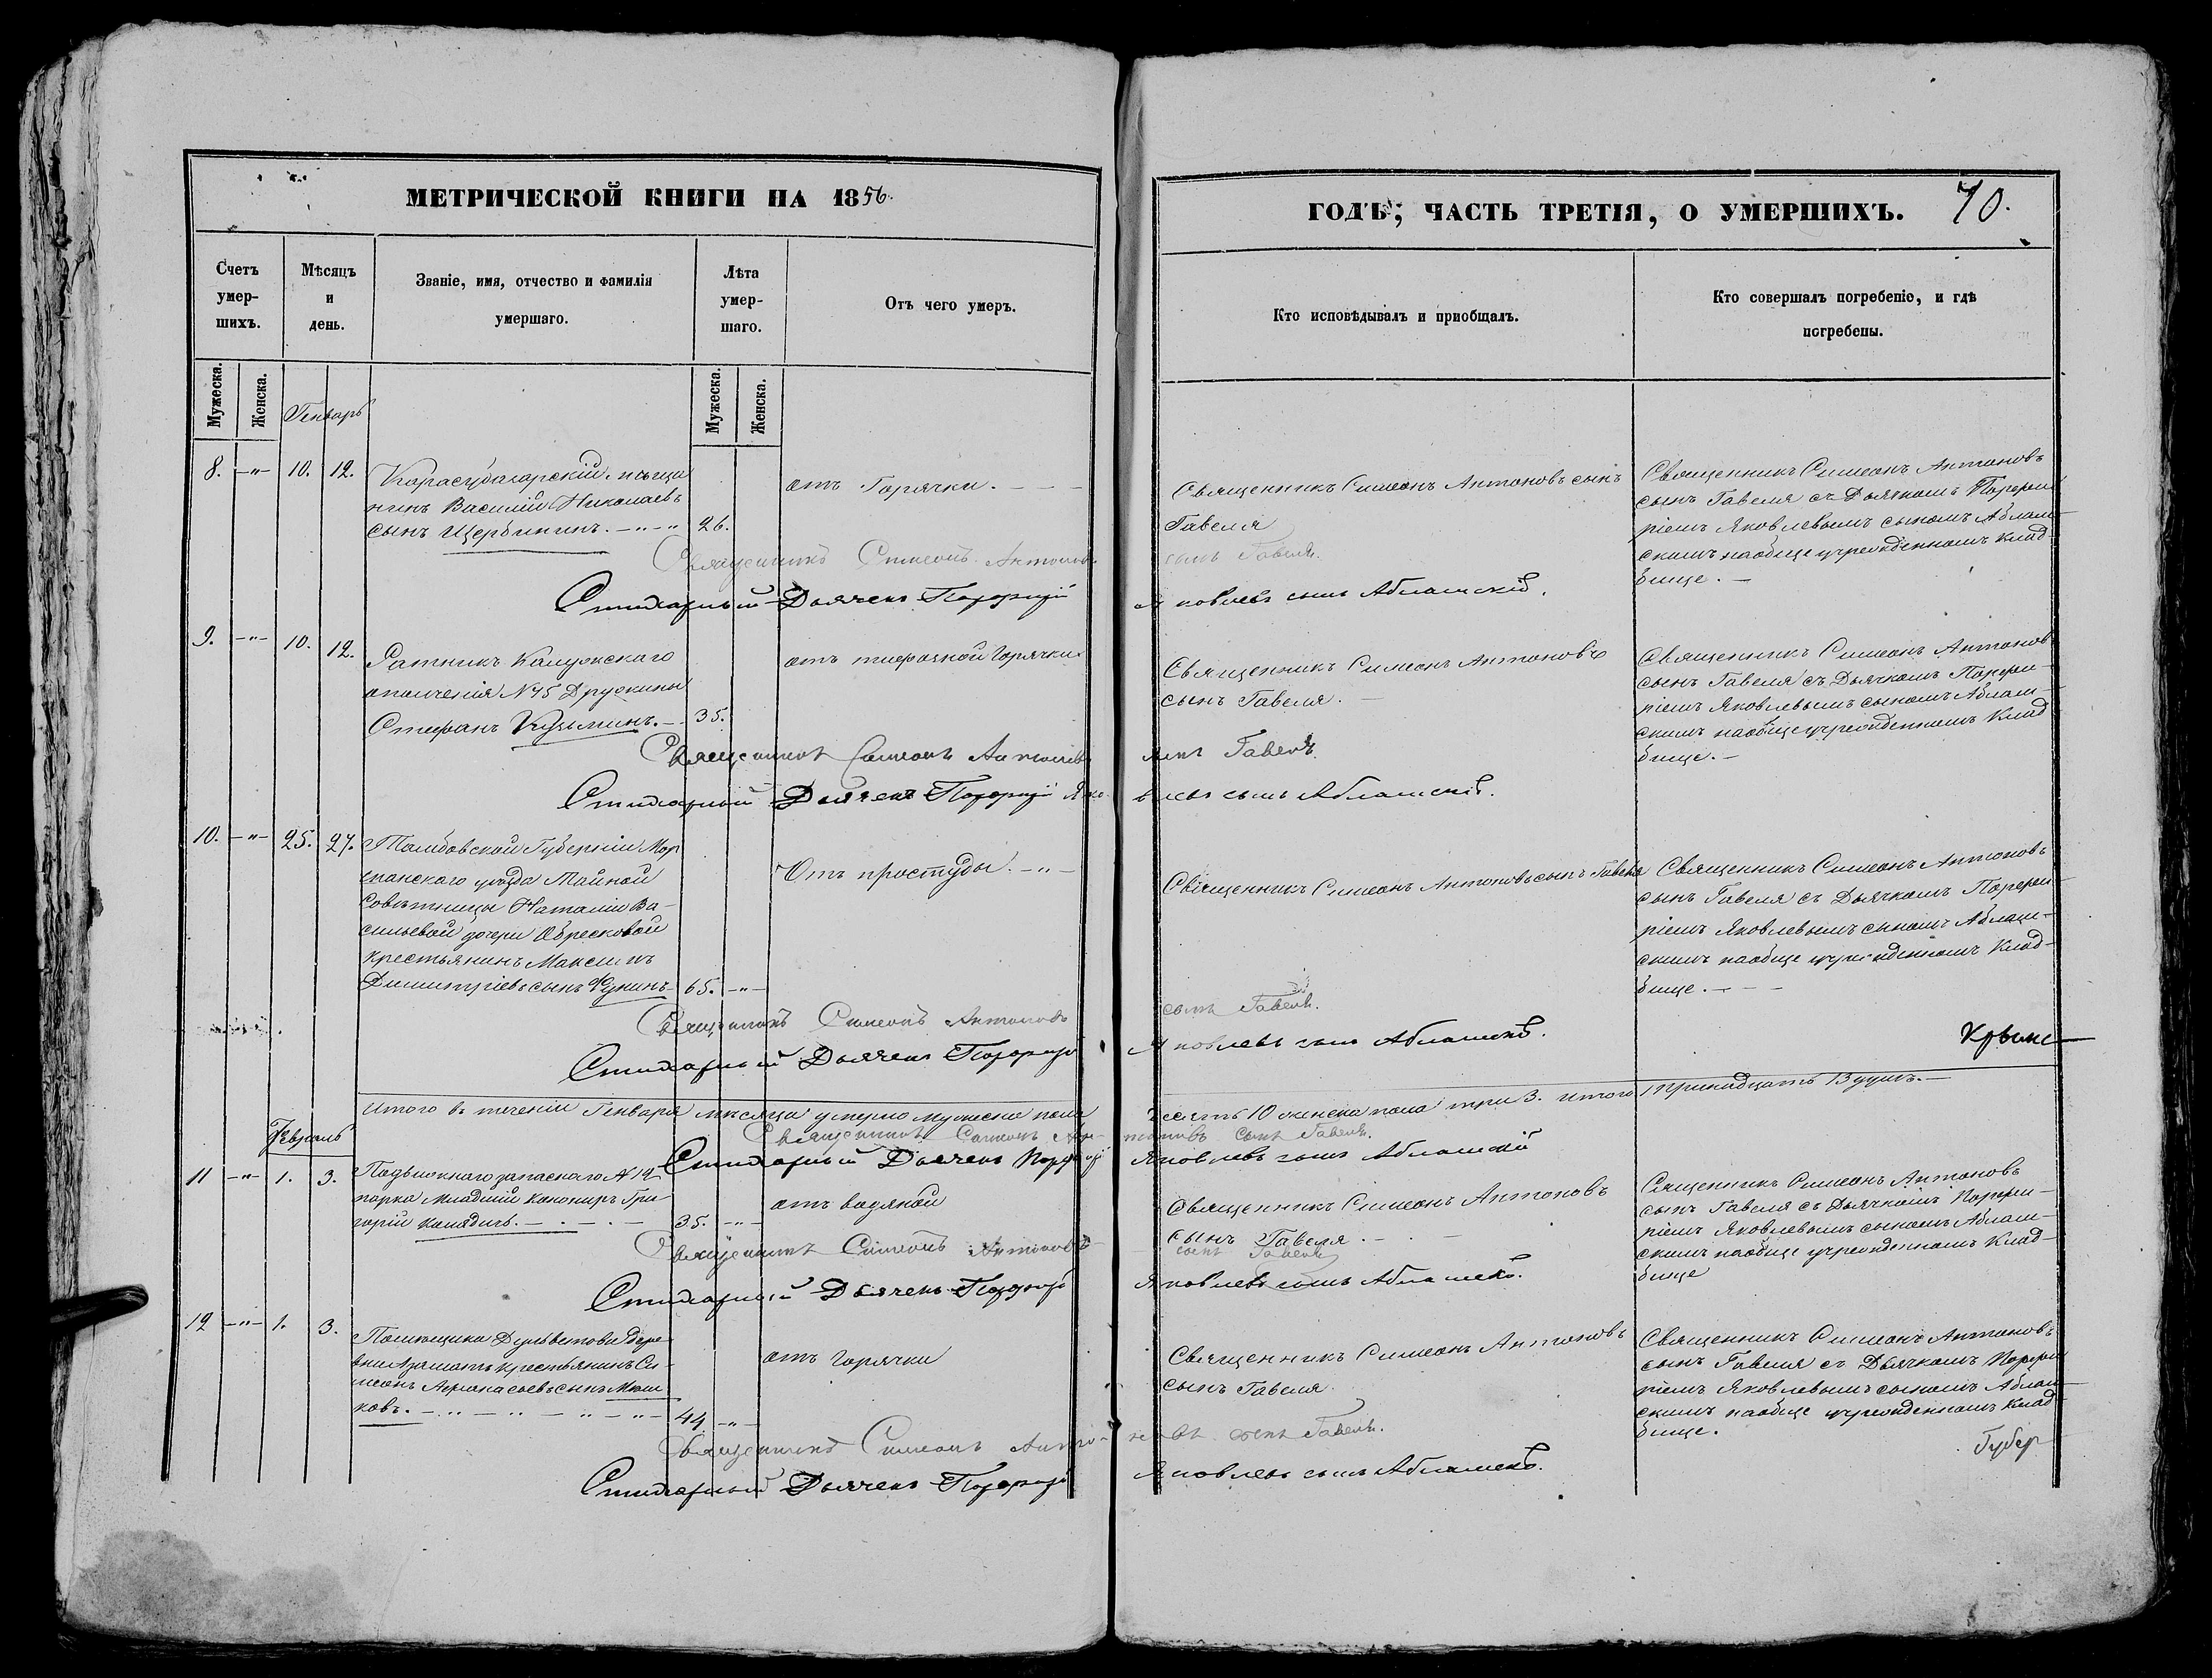 МЕТРИЧЕСКОЙ КНИГИ НА 1856.
ГОДЪ, ЧАСТЬ ТРЕТІЯ, О УМЕРШИХЪ. 70.
Счетъ умер-
шихъ.
Мѣсяцъ
и
день.
Званіе, имя, отчество и фамилія
умершаго.
Лѣта
умер-
шаго.
Отъ чего умеръ.
Кто исповѣдывалъ и пріобщалъ.
Кто совершалъ погребеніе, и гдѣ
погребены.
Мужеска.
Женска.
Генварь
Мужеска.
Женска.
8. —"— 10. 12.
Карасубазарскій мѣща
нинъ Василій Николаевъ
сынъ Щербининъ. — 26.
отъ Горячки.
Священникъ Симеонъ Антоновъ сынъ
Гавеля
Священникъ Симеонъ Антоновъ
сынъ Гавеля съ Дьячкомъ Порфи
ріемъ Яковлевымъ сыномъ Аблам-
скимъ наобще учрежденномъ Клад-
бище. —
Священникъ Симеонъ Антоновъ сынъ Гавеля.
Стихарный Дьячекъ Порфирій Яковлевъ сынъ Абламскій.
9. —"— 10. 12.
Ратникъ Калужскаго
ополченія №45 Дружины
Стефанъ Кузьминъ. — 35.
отъ тифозной Горячки
Священникъ Симеонъ Антоновъ
сынъ Гавеля. —
Священникъ Симеонъ Антонов
сынъ Гавеля съ Дьячкомъ Порфи-
ріемъ Яковлевымъ сыномъ Аблам-
скимъ наобще учрежденномъ Клад
бище. —
Священникъ Симеонъ Антоновъ сынъ Гавеля.
Стихарный Дьячекъ Порфирій Яковлевъ сынъ Абламскій.
10. —"— 25. 27.
Тамбовской Губерніи Мор
шанскаго уѣзда Тайной
Совѣтницы Наталіи Ва-
сильевой дочери Обресковой
крестьянинъ Максимъ
Димитріевъ сынъ 65. —"—
Отъ простуды. —"—
Священникъ Симеонъ Антоновъ сынъ Гавеля
Священникъ Симеонъ Антоновъ
сынъ Гавеля съ Дьячкомъ Порфи-
ріемъ Яковлевымъ сыномъ Аблам-
скимъ наобще учрежденномъ Клад-
бище. — — —
Священникъ Симеонъ Антоновъ сынъ Гавеля.
Стихарный Дьячекъ Порфирій Яковлевъ сынъ Абламскій.
Итого въ теченіи Генваря мѣсяца умерло мужеска пола десять 10 женска пола три 3. итого тринадцать 13 душъ. —
Священникъ Симеонъ Антоновъ сынъ Гавеля.
Стихарный Дьячекъ Порфирій Яковлевъ сынъ Абламскій
Февраль
11 —"— 1. 3.
Подвижнаго запаснаго №12
парка младшій Канониръ Гри-
горій 35. —"—
отъ водяной
Священникъ Симеонъ Антоновъ
сынъ Гавеля. —
Священникъ Симеонъ Антоновъ
сынъ Гавеля съ Дьячкомъ Порфи-
ріемъ Яковлевымъ сыномъ Аблам-
скимъ наобще учрежденномъ Клад-
бище
Священникъ Симеонъ Антоновъ сынъ Гавеля
Стихарный Дьячекъ Порфирій Яковлевъ сынъ Абламскій.
12 —"— 1. 3.
Помѣщика дере-
вни крестьянинъ Си-
меонъ Афонасьевъ сынъ
ковъ. — 44 —"—
отъ горячки
Священникъ Симеонъ Антоновъ
сынъ Гавеля
Священникъ Симеонъ Антоновъ
сынъ Гавеля съ Дьячкомъ Порфи
ріемъ Яковлевымъ сыномъ Аблам-
скимъ наобще учрежденномъ Клад
бище.
Губер
Священникъ Симеонъ Антоновъ сынъ Гавеля.
Стихарный Дьячекъ Порфирій Яковлевъ сынъ Абламскій.